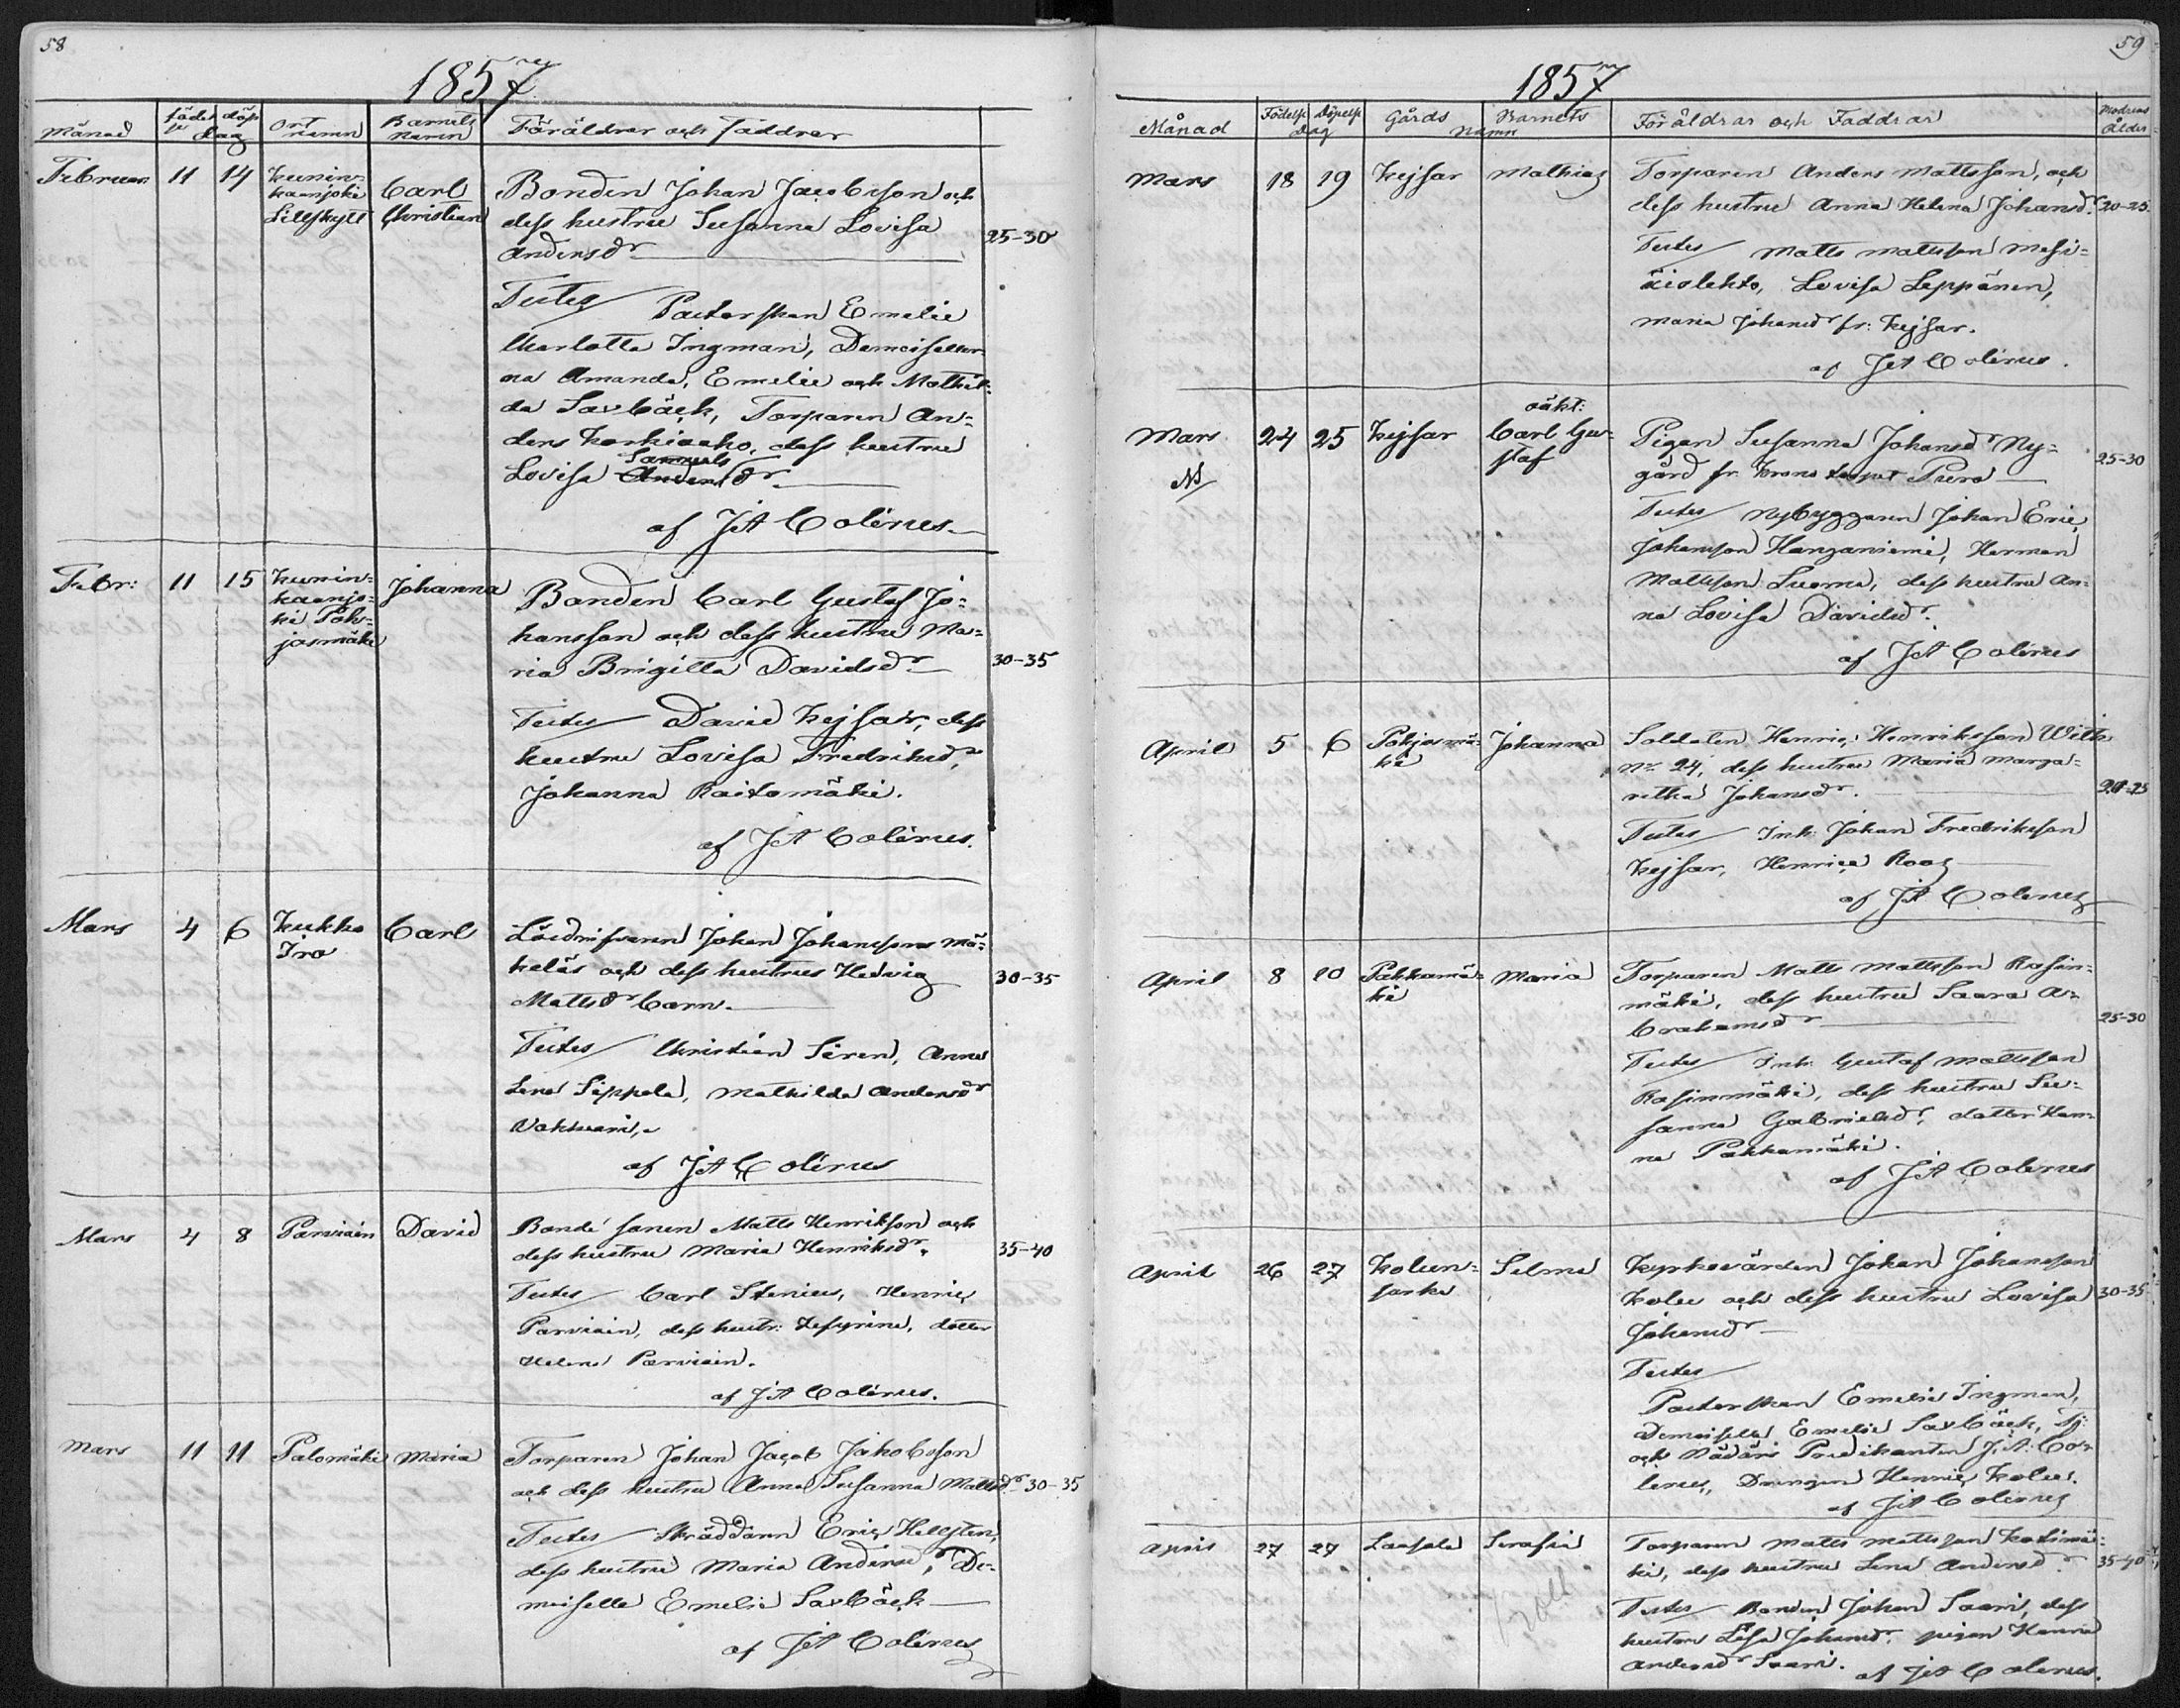 58
1857
Månad
födel döp
se Dag
Ort namn
Barnets Namn
Föräldrar och Faddrar
Februari 11 14
Kunin-
kaanjoki
Lillskytt
Carl
Christian
Bonden Johan Jacobsson och
dess hustru Susanna Lovisa
Andersdr
25-30
Testes Pastorskan Emelie
Charlotta Ingman, Demoiseller
na Amanda, Emelie och Mathil-
da Saxbäck, Torparen An-
ders Karhiaho, dess hustru
Samuels
Lovisa Andersdr
af JA Colérus
Febr: 11 15
Kunin-
kaanjo-
ki Poh-
jasmäki
Johanna
Bonden Carl Gustaf Jo-
hansson och dess hustru Ma-
ria Brigitta Davidsdr
30-35
Testes David Kejsar, dess
hustru Lovisa Fredriksdr,
Johanna Raitamäki.
af JA Colérus.
Mars 4 6
Kukko
Iro
Carl
Lösdrifvaren Johan Johanssons Mä-
keläs och dess hustrus Hedvig
Mattsdr barn.
30-35
Testes Christian Siren, Anna
Lena Sippola, Mathilda Andersdr
Wakkuri.
af JA Colérus
Mars 4 8 Parviain David
Bonde sonen Matts Henrikson och
dess hustru Maria Henriksdr.
35-40
Testes Carl Stenius, Henric
Parviain, dess hustr: Sefyrina, dotter
Helena Parviain.
af JA Colérus.
Mars 11 11 Palomäki Maria
Torparen Johan Jacob Jakobsson
och dess hustru Anna Susanna Mattsdr 30-35
Testes Skräddaren Eric Hellsten,
dess hustru Maria Andersdr, De-
moiselle Emelie Saxbäck
af JA Colérus
59
1857
Månad
Födelse Döpelse
Dag
Gårds Barnets
Namn
Föräldrar och Faddrar
Modrens ålder
Mars 18 19 Kejsar Mathias
Torparen Anders Mattsson, och
dess hustru Anna Helena Johansdr. 20-25.
Testes Matts Mattsson Mesi-
äislehto, Lovisa Leppänen,
Maria Johansdr fr: Kejsar.
af JA Colérus.
Mars 24 25 Kejsar
NB
oäkt:
Carl Gu-
staf
Pigan Susanna Johansdr Ny-
gård fr. Krono torpet Puro
25-30
Testes Nybyggaren Johan Eric
Johansson Hanganiemi, Herman
Mattsson Luoma, dess hustru An-
na Lovisa Davidsdr.
af JA Colérus
April 5 6
Pohjasmä-
ki
Johanna
Soldaten Henric Henriksson Wilk
No 24, dess hustru Maria Marga-
retha Johansdr.
20-25
Testes Inh. Johan Fredriksson
Kejsar, Henrica Roos
af JA Colerus
April 8 10
Pakkamä-
ki
Maria
Torparen Matts Mattsson Rasin-
mäki, dess hustru Saara A-
brahamsdr
25-30
Testes Inh: Gustaf Mattsson
Rasinmäki, dess hustru Su-
sanna Gabrielsdr, dotter Han-
na Pakkamäki.
af JA Colerus
April 26 27
Kolun-
sarka
Selma
Kyrkovärden Johan Johansson
Kolu och dess hustru Lovisa 30-35
Johansdr
Testes
Pastorskan Emelie Ingman,
Demoiselle Emelie Saxbäck, Tj:
och Nådårs Predikanten J.A. Co-
lerus, Drengen Henric Kolu.
af JA Colérus
April 27 27 Laasala Serafia
Torparen Matts Mattsson Kotimä-
ki, dess hustru Lena Andersdr. 35-40
Testes Bonden Johan Saari, dess
hustru Lisa Johansdr. pigan Hanna
Andersdr Saari. af JA Colerus.